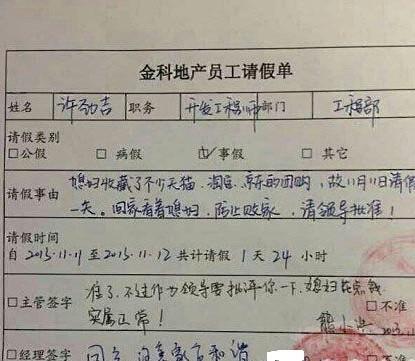 金科地产员工请假单
姓名 许劲吉 职务 开发工程师 部门 工程部
请假类别
□公假 □ 病假 ☑事假 □ 其它
请假事由 媳妇收藏了不少天猫、淘宝、京东的团购，故11月11日请假
一天。回家看着媳妇，防止败家，请领导批准！
请假时间
自 2015.11.11 至 2015.11.12 共计请假 1 天 24 小时
准了，不过作为领导要批评你一下，媳妇在花钱
□主管签字 实属正常！ □不准
熊小兵 2015.11
□经理签字 同意，家和谐 □不准